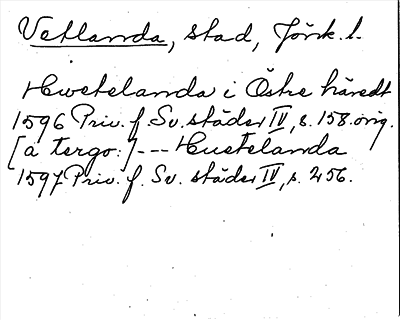 Vetlanda, stad, Jönk. l.
Hwetelanda i Östre häredt
1596 Priv. f. Sv. städer IV, s. 158. orig.
[a tergo:] --- Huetelanda
1597 Priv. f. Sv. städer IV, s. 256.